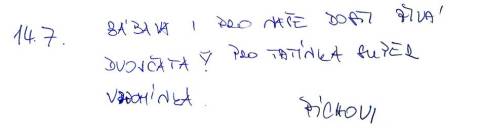 14.7. ZÁBAVA I PRO NAŠE DOSTI ŽIVÁ
DVOJČATA! PRO TATÍNKA SUPER
VZPOMÍNKA.
PÍCHOVI